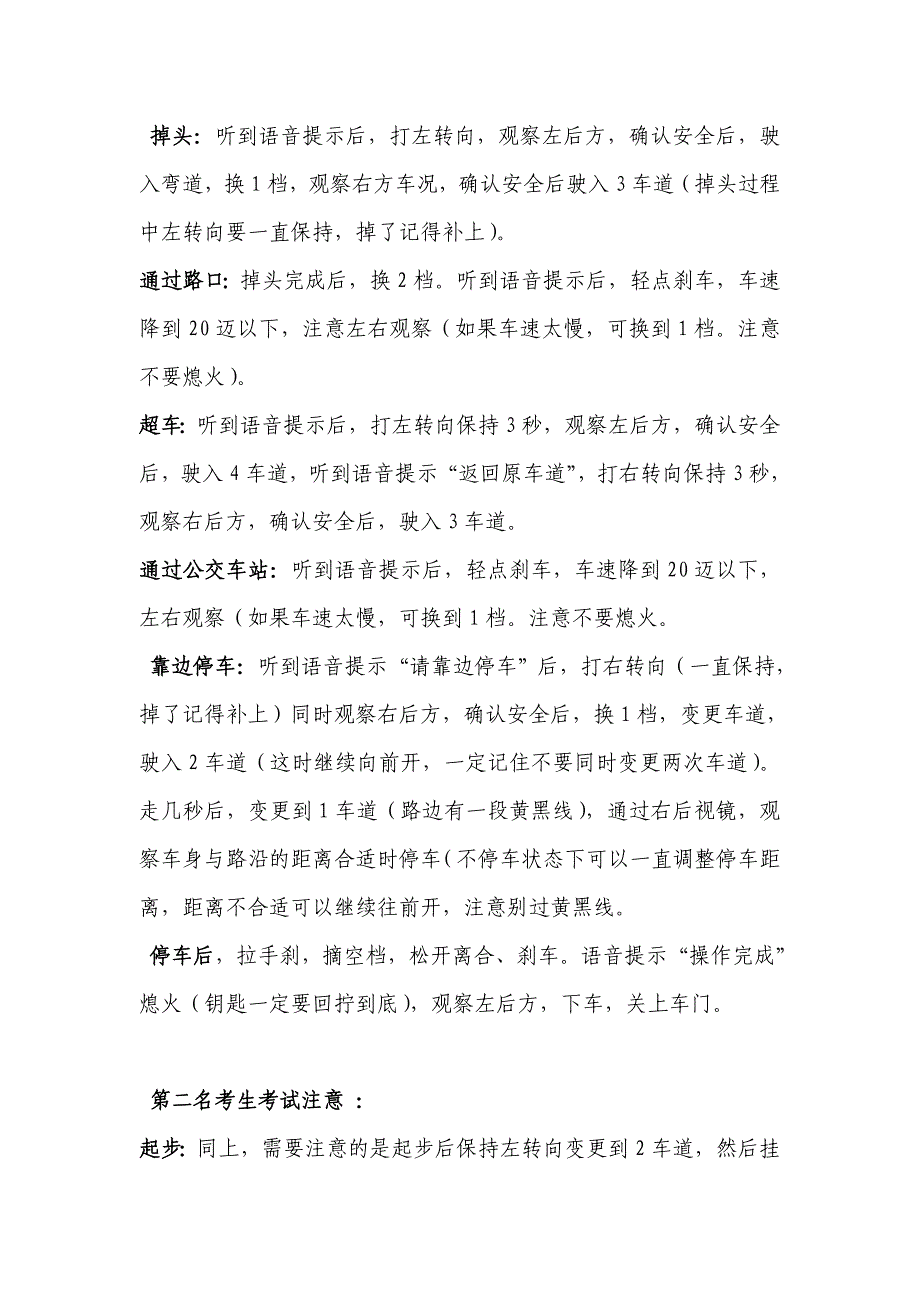 掉头：听到语音提示后，打左转向，观察左后方，确认安全后，驶
入弯道，换 1 档，观察右方车况，确认安全后驶入 3 车道（掉头过程
中左转向要一直保持，掉了记得补上）。
通过路口：掉头完成后，换 2 档。听到语音提示后，轻点刹车，车速
降到 20 迈以下，注意左右观察（如果车速太慢，可换到 1 档。注意
不要熄火）。
超车：听到语音提示后，打左转向保持 3 秒，观察左后方，确认安全
后，驶入 4 车道，听到语音提示“返回原车道”，打右转向保持 3 秒，
观察右后方，确认安全后，驶入 3 车道。
通过公交车站：听到语音提示后，轻点刹车，车速降到 20 迈以下，
左右观察（如果车速太慢，可换到 1 档。注意不要熄火。
靠边停车：听到语音提示“请靠边停车”后，打右转向（一直保持，
掉了记得补上）同时观察右后方，确认安全后，换 1 档，变更车道，
驶入 2 车道（这时继续向前开，一定记住不要同时变更两次车道）。
走几秒后，变更到 1 车道（路边有一段黄黑线），通过右后视镜，观
察车身与路沿的距离合适时停车（不停车状态下可以一直调整停车距
离，距离不合适可以继续往前开，注意别过黄黑线。
停车后，拉手刹，摘空档，松开离合、刹车。语音提示“操作完成”
熄火（钥匙一定要回拧到底），观察左后方，下车，关上车门。
第二名考生考试注意 ：
起步：同上，需要注意的是起步后保持左转向变更到 2 车道，然后挂